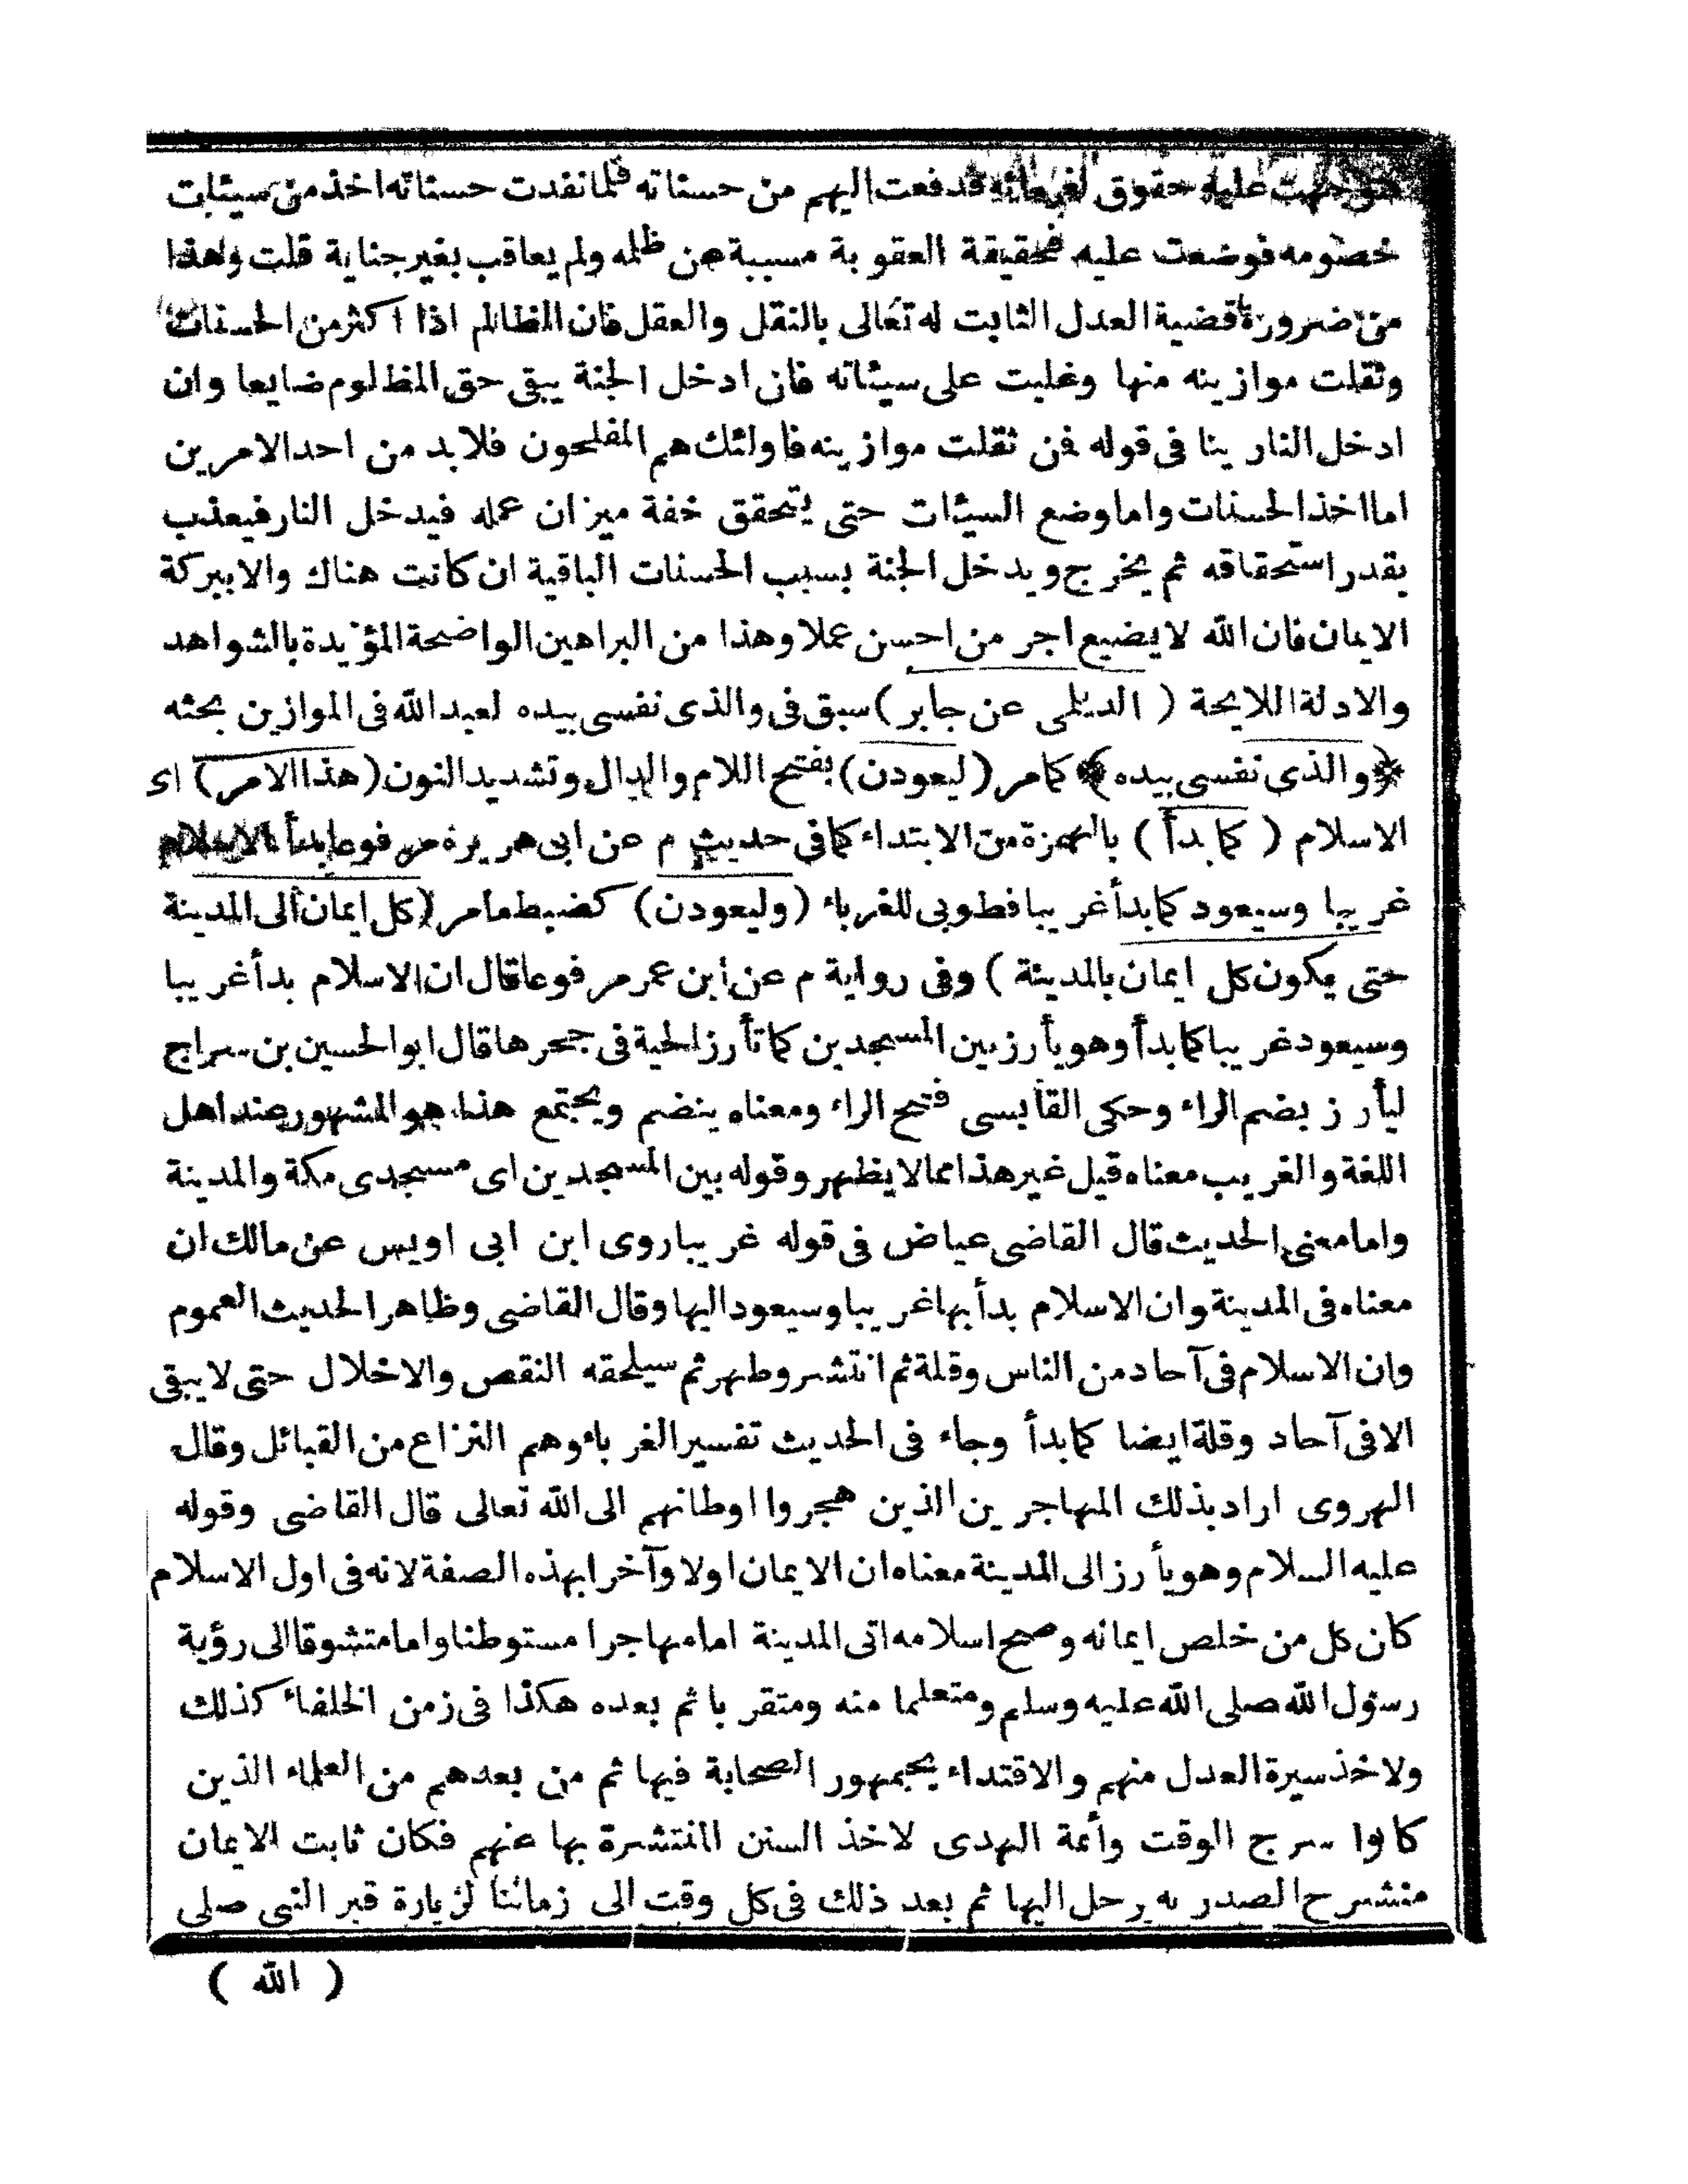 عليه حقوق لغرمائه فدفعت اليهم من حسناته فلما نفدت حسناته اخذ من سيئات
خصومه فوضعت عليه فحقيقة العقوبة مسببة عن ظلمه ولم يعاقب بغير جناية قلت وهذا
من ضرورة قضية العدل الثابت له تعالى بالنقل والعقل فان الظالم اذا اكثر من الحسنات
وثقلت موازينه منها وغلبت على سيئاته فان ادخل الجنة يبقى حق المظلوم ضايعا وان
ادخل النار ينا فى قوله فمن ثقلت موازينه فاولئك هم المفلحون فلابد من احد الامرين
اما اخذ الحسنات واما وضع السيئات حتى يتحقق خفة ميزان عمله فيدخل النار فيعذب
بقدر استحقاقه ثم يخرج ويدخل الجنة بسبب الحسنات الباقية ان كانت هناك والا ببركة
الايمان فان الله لا يضيع اجر من احسن عملا وهذا من البراهين الواضحة المؤيدة بالشواهد
والادلة اللايحة ( الديلمى عن جابر ) سبق فى والذى نفسى بيده لعبد الله فى الموازين بحثه
﴿ والذى نفسى بيده ﴾ كمامر ( ليعودن ) بفتح اللام والدال وتشديد النون ( هذا الامر ) اى
الاسلام ( كما بدأ ) بالهمزة من الابتداء كما فى حديث م عن ابى هريرة مرفوعا بدأ الاسلام
غريبا وسيعود كما بدأ غريبا فطوبى للغرباء ( وليعودن ) كضبط مامر ( كل ايمان الى المدينة
حتى يكون كل ايمان بالمدينة ) وفى رواية م عن ابن عمر مرفوعا قال ان الاسلام بدأ غريبا
وسيعود غريبا كما بدأ وهو يأرز بين المسجدين كما تأرز الحية فى جحرها قال ابو الحسين بن سراج
ليأرز بضم الراء وحكى القابسى فتح الراء ومعناه ينضم ويجتمع هذا هو المشهور عند اهل
اللغة والغريب معناه قيل غير هذا مما لا يظهر وقوله بين المسجدين اى مسجدى مكة والمدينة
واما معنى الحديث قال القاضى عياض فى قوله غريبا روى ابن ابى اويس عن مالك ان
معناه فى المدينة وان الاسلام بدأ بها غريبا وسيعود اليها وقال القاضى وظاهر الحديث العموم
وان الاسلام فى آحاد من الناس وقلة ثم انتشر وطهر ثم سيلحقه النقص والاخلال حتى لا يبقى
الا فى آحاد وقلة ايضا كما بدأ وجاء فى الحديث تفسير الغرباء وهم النزاع من القبائل وقال
الهروى اراد بذلك المهاجرين الذين هجروا اوطانهم الى الله تعالى قال القاضى وقوله
عليه السلام وهو يأرز الى المدينة معناه ان الايمان اولا وآخرا بهذه الصفة لانه فى اول الاسلام
كان كل من خلص ايمانه وصح اسلامه اتى المدينة اما مهاجرا مستوطنا واما متشوقا الى رؤية
رسول الله صلى الله عليه وسلم ومتعلما منه ومتقربا ثم بعده هكذا فى زمن الخلفاء كذلك
ولاخذ سيرة العدل منهم والاقتداء بجمهور الصحابة فيها ثم من بعدهم من العلماء الذين
كانوا سرج الوقت وأئمة الهدى لاخذ السنن المنتشرة بها عنهم فكان ثابت الايمان
منشرح الصدر به رحل اليها ثم بعد ذلك فى كل وقت الى زماننا لزيارة قبر النبى صلى
( الله )